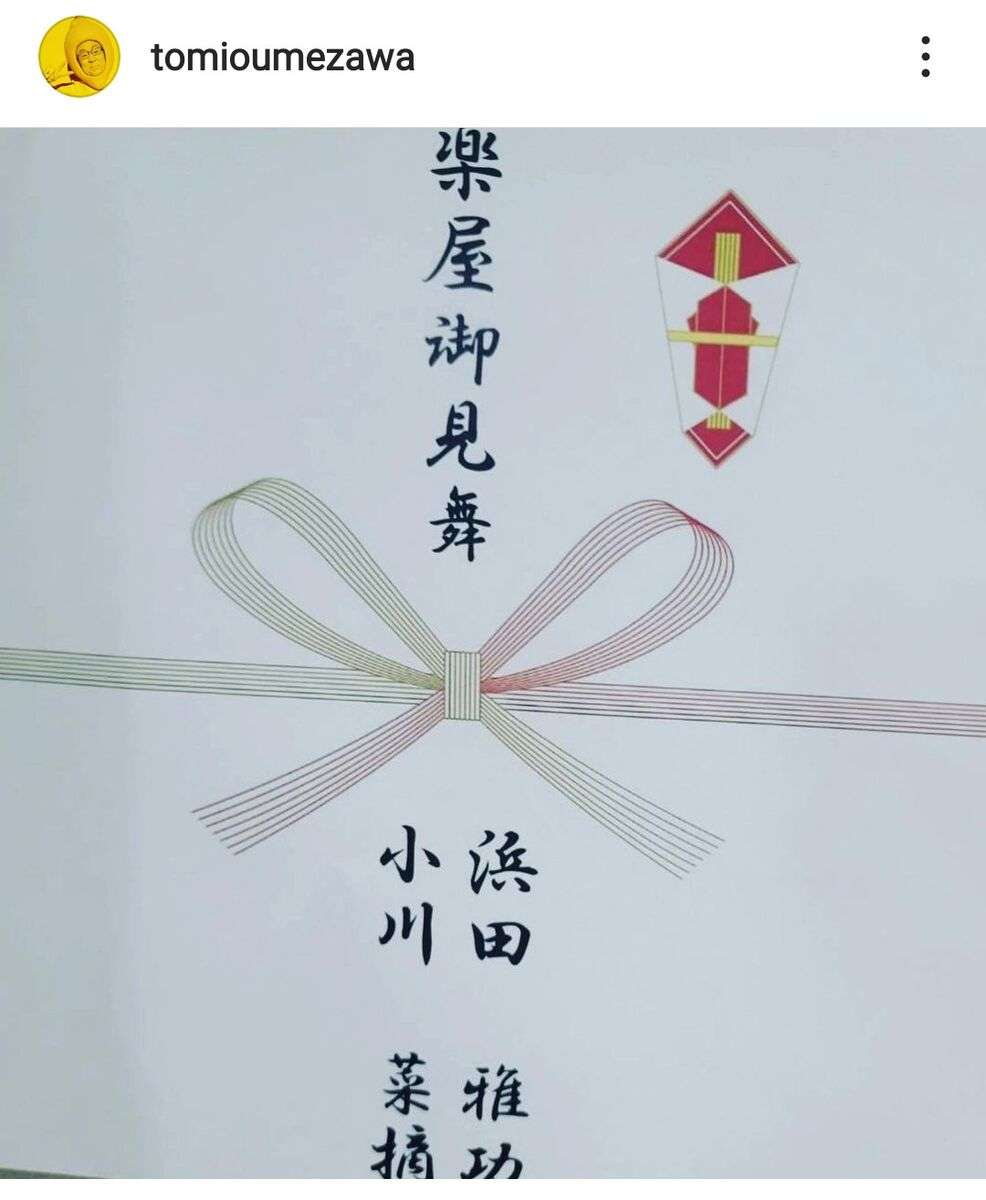 tomioumezawa
楽屋御見舞
浜田雅功
小川菜摘